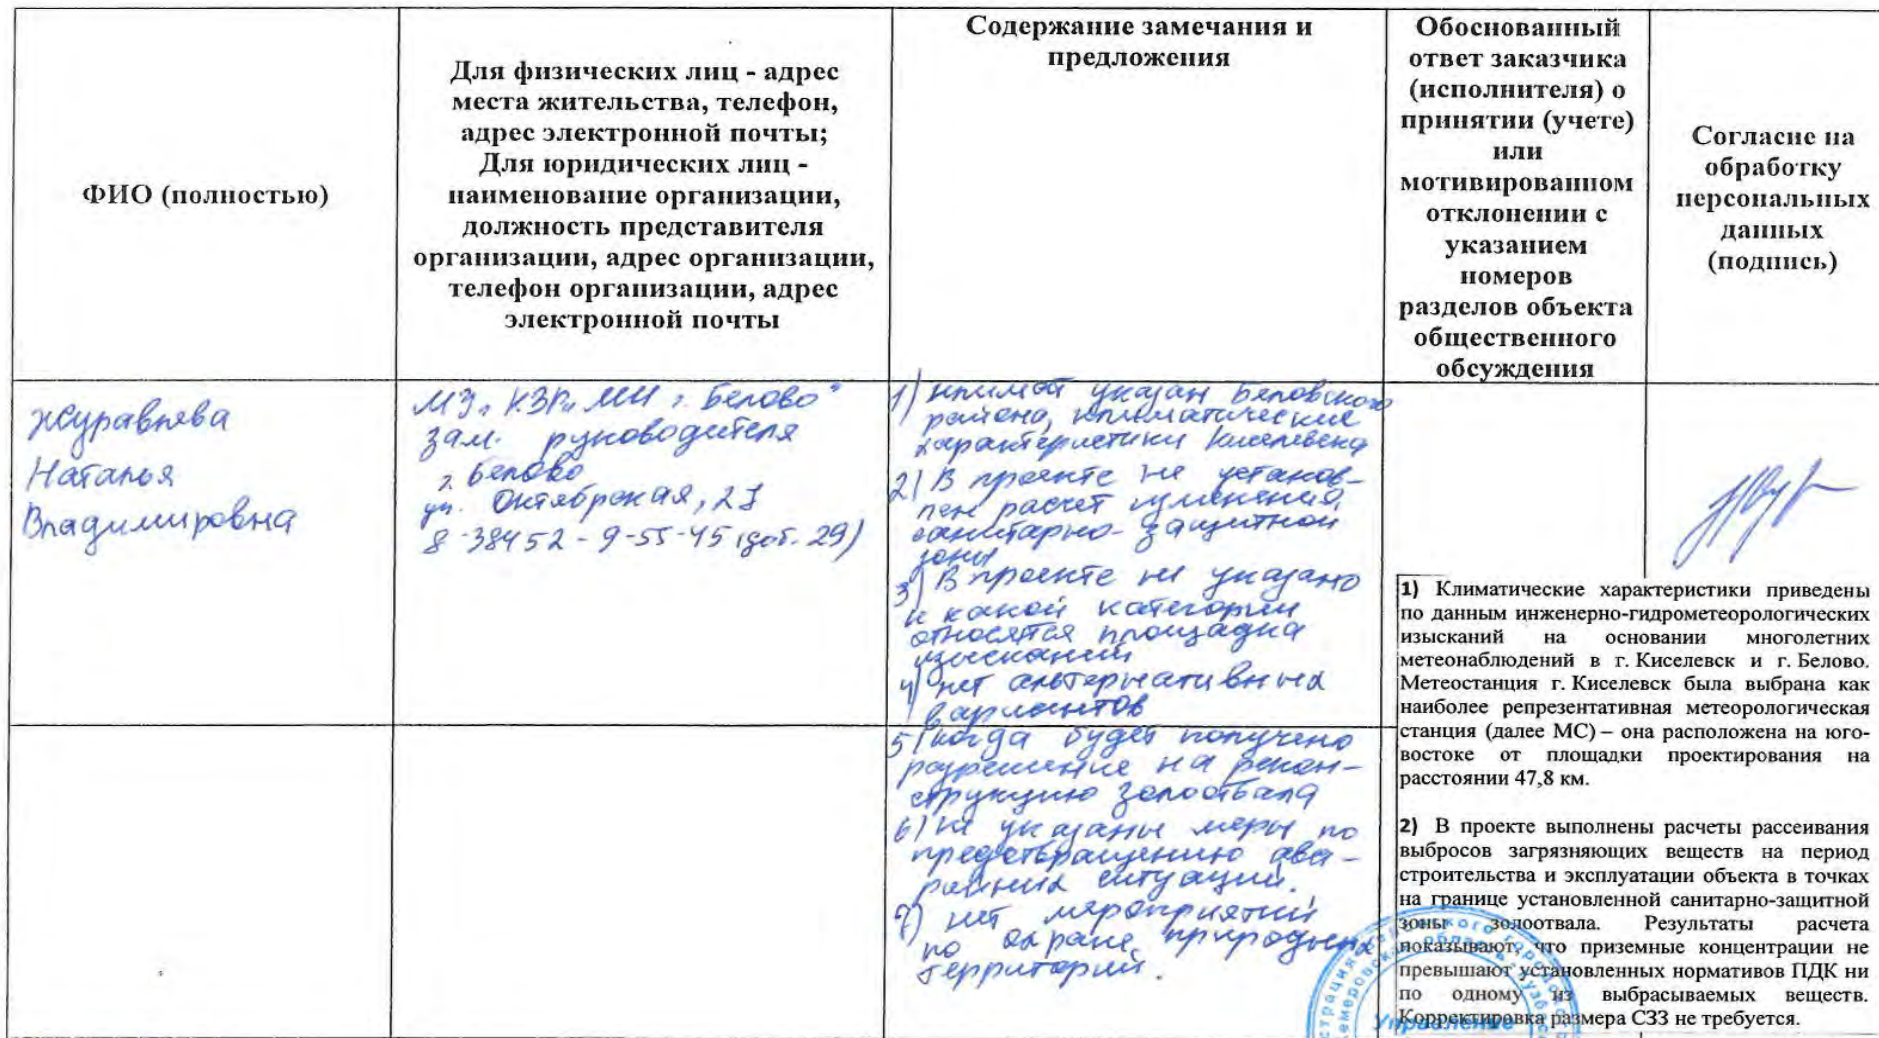 ФИО (полностью)
Для физических лиц - адрес
места жительства, телефон,
адрес электронной почты;
Для юридических лиц -
наименование организации,
должность представителя
организации, адрес организации,
телефон организации, адрес
электронной почты
Содержание замечания и
предложения
Обоснованный
ответ заказчика
(исполнителя) о
принятии (учете)
или
мотивированном
отклонении с
указанием
номеров
разделов объекта
общественного
обсуждения
Согласие на
обработку
персональных
данных
(подпись)
Журавлева
Наталья
Владимировна
МУ "КЗРи МИ г. Белово"
зам. руководителя
г. Белово
ул. Октябрьская,
8-38452-9-55-45 (доб. 29)
1) климат указан Беловского
района, климатические
характеристики Киселевска
2) В проекте не установ-
лен расчет изменения
санитарно-защитной
зоны
3) В проекте не указано
к какой категории
относятся площадка
изысканий
4) нет альтернативных
вариантов
5) когда будет получено
разрешение на рекон-
струкцию золоотвала
6) не указаны меры по
предотвращению ава-
рийных ситуаций.
7) нет мероприятий
по охране природных
территорий.
1) Климатические характеристики приведены
по данным инженерно-гидрометеорологических
изысканий на основании многолетних
метеонаблюдений в г. Киселевск и г. Белово.
Метеостанция г. Киселевск была выбрана как
наиболее репрезентативная метеорологическая
станция (далее МС) – она расположена на юго-
востоке от площадки проектирования на
расстоянии 47,8 км.
2) В проекте выполнены расчеты рассеивания
выбросов загрязняющих веществ на период
строительства и эксплуатации объекта в точках
на границе установленной санитарно-защитной
зоны золоотвала. Результаты расчета
показывают, что приземные концентрации не
превышают установленных нормативов ПДК ни
по одному из выбрасываемых веществ.
Корректировка размера СЗЗ не требуется.
Управление